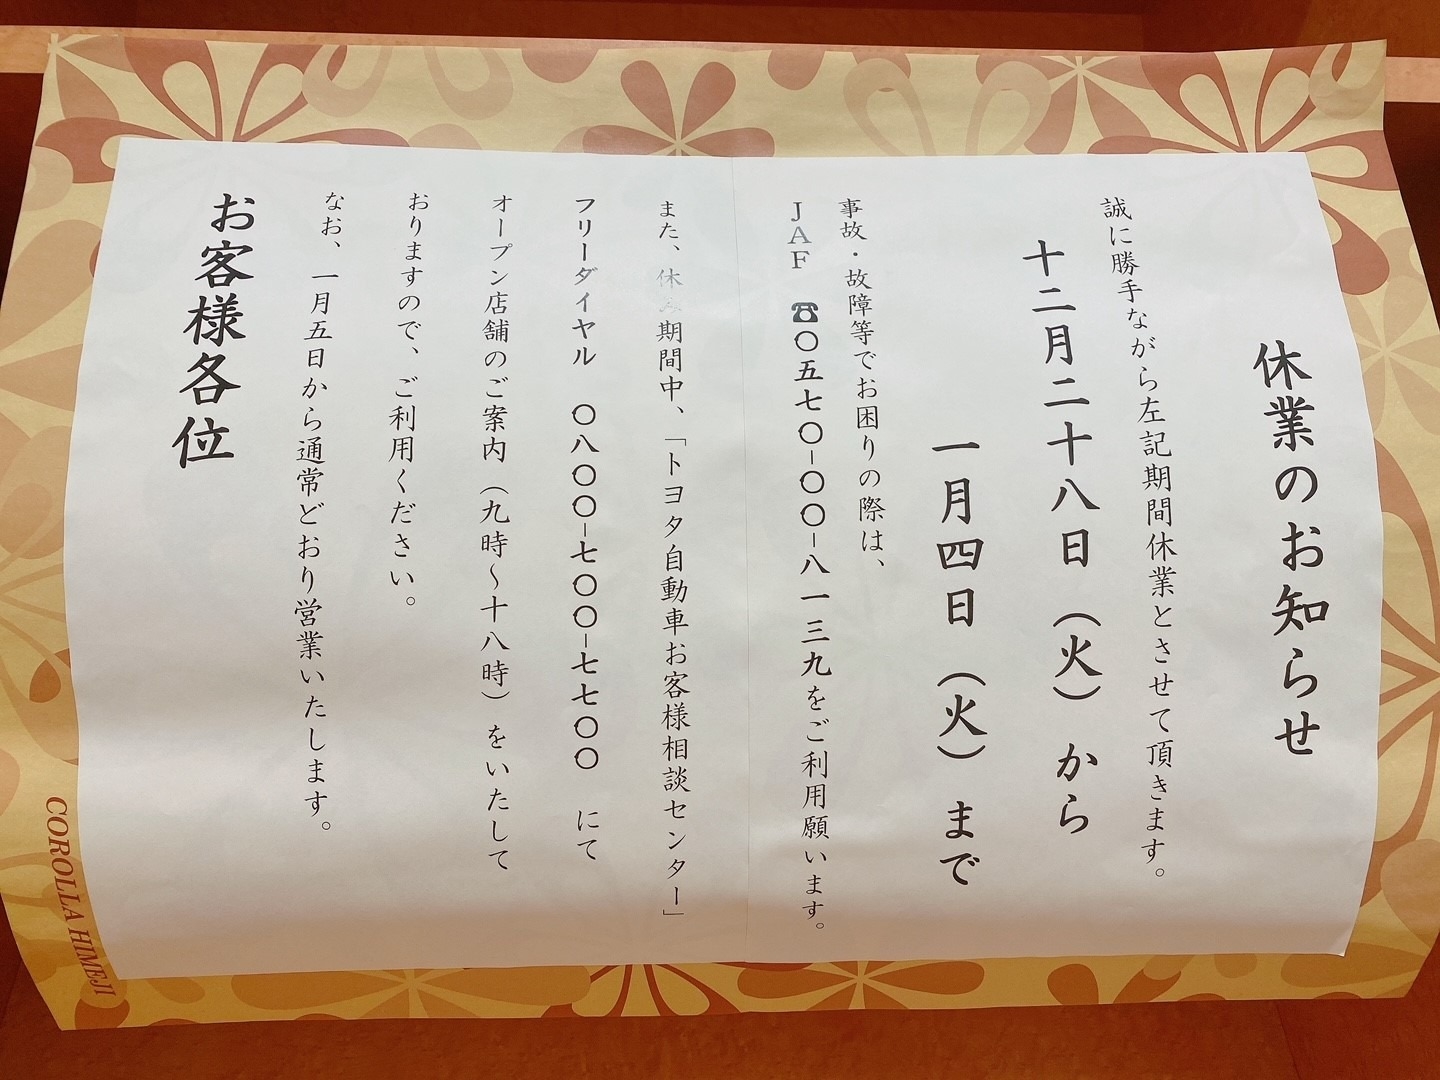 休業のお知らせ
誠に勝手ながら左記期間休業とさせて頂きます。
十二月二十八日（火）から
一月四日（火）まで
事故・故障等でお困りの際は、
JAF ☎〇五七〇-〇〇-八一三九をご利用願います。
また、休み期間中、「トヨタ自動車お客様相談センター」
フリーダイヤル 〇八〇〇-七〇〇-七七〇〇 にて
オープン店舗のご案内（九時～十八時）をいたして
おりますので、ご利用ください。
なお、一月五日から通常どおり営業いたします。
お客様各位
COROLLA HIMEJI